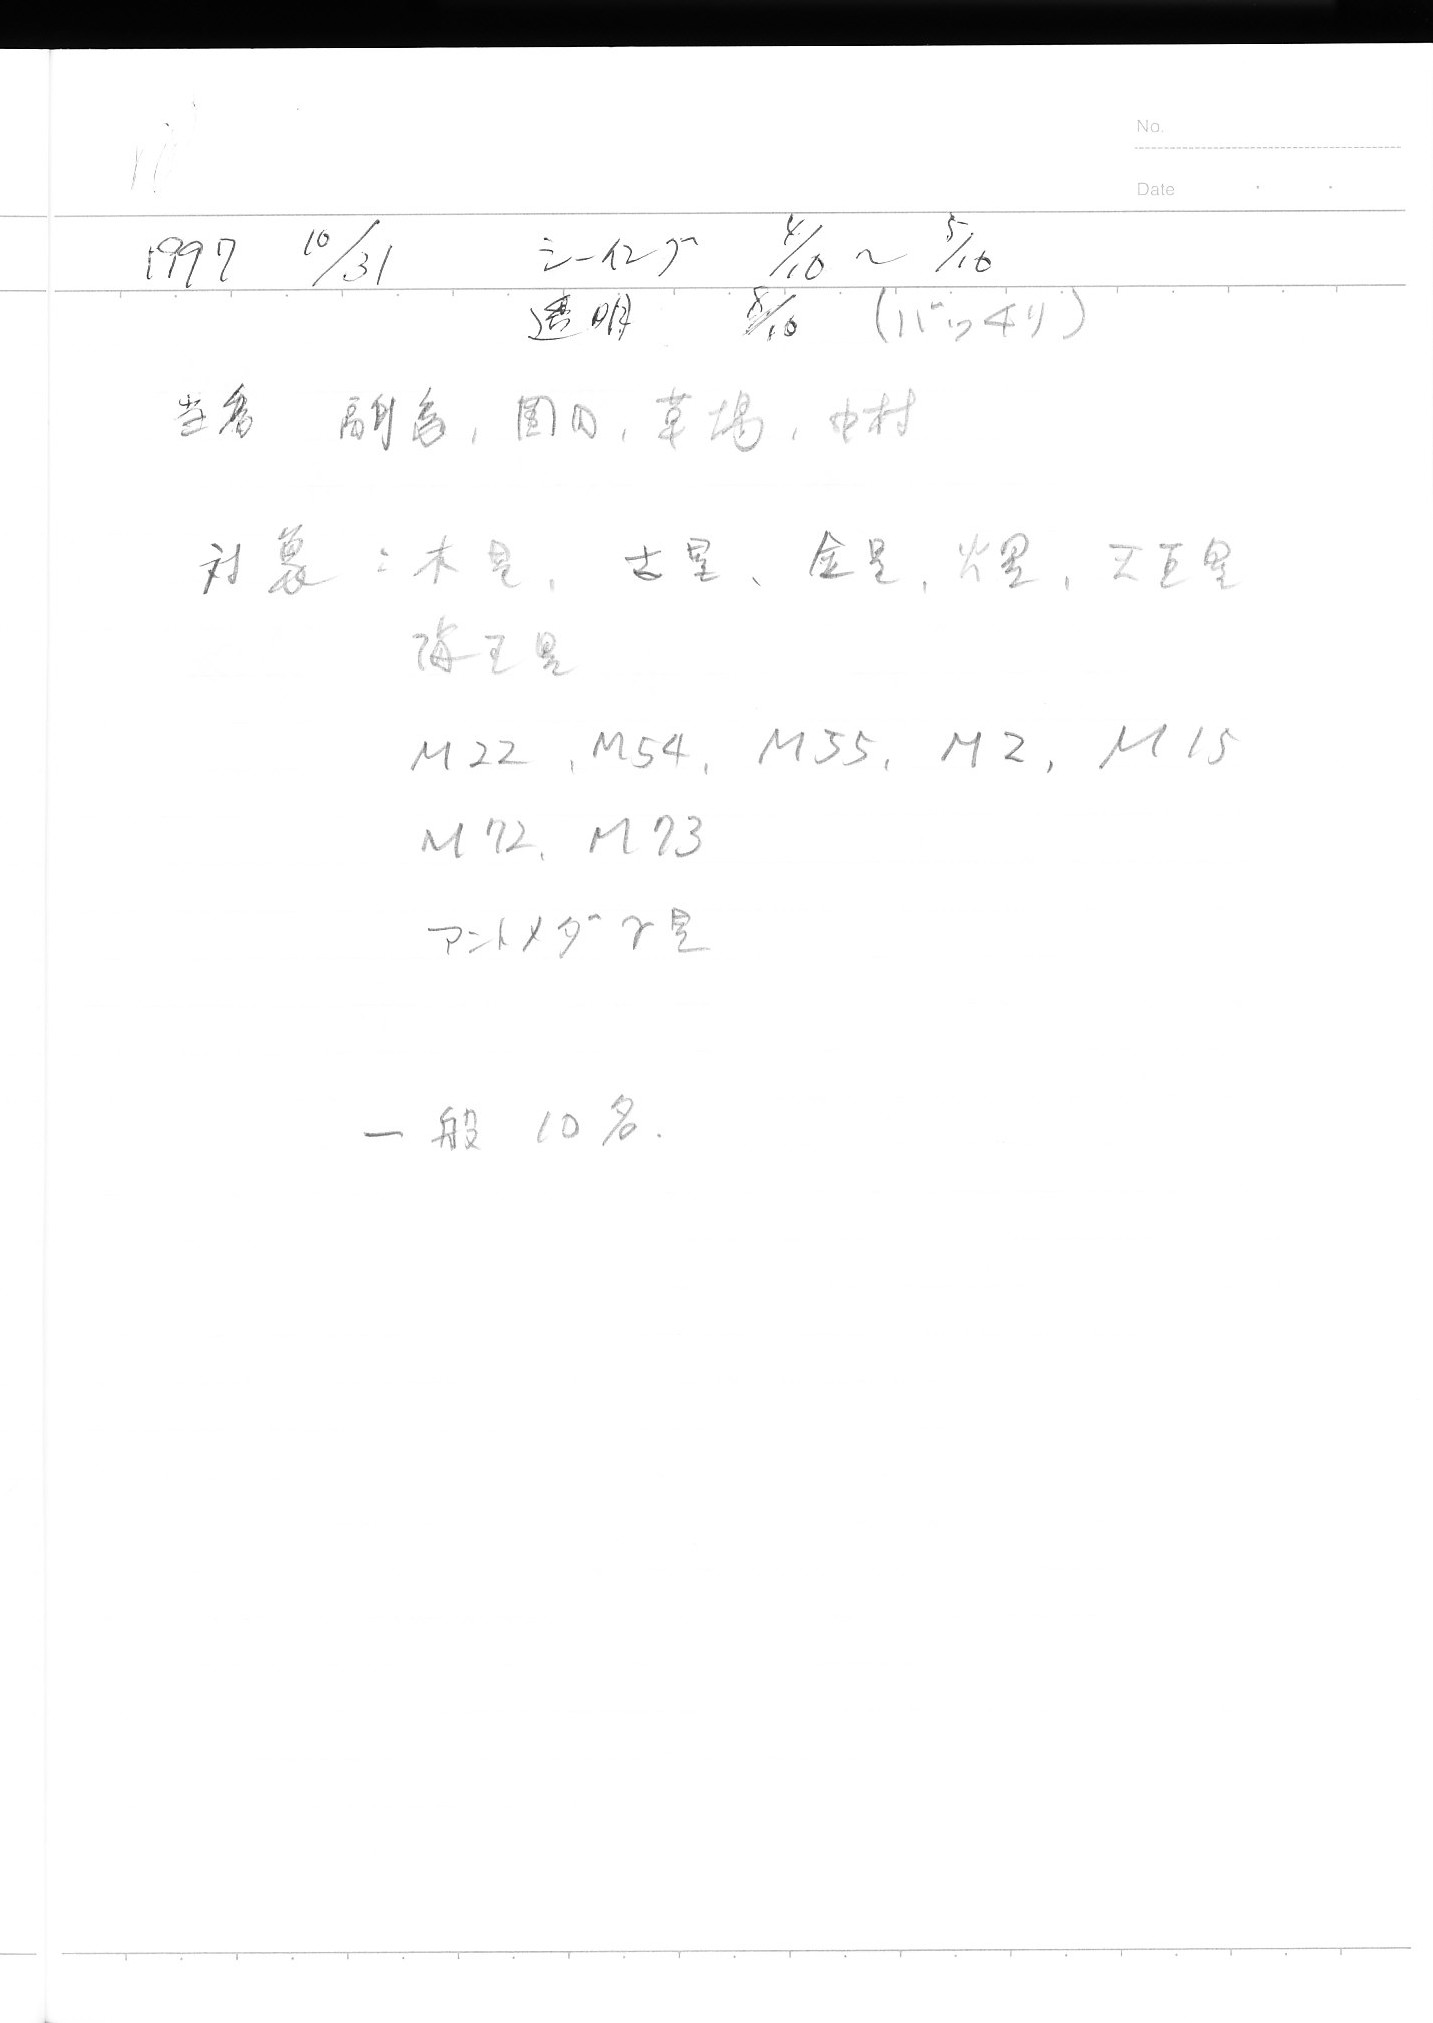 No.
Date
1997 10/31 シーイング 4/10 ~ 5/10
透明 8/10 (バッチリ)
当番 副島, 園田, 草場, 中村
対象 : 木星, 土星、金星, 火星, 天王星
海王星
M22, M54, M55, M2, M15
M72, M73
アンドメダ γ星
一般 10名.